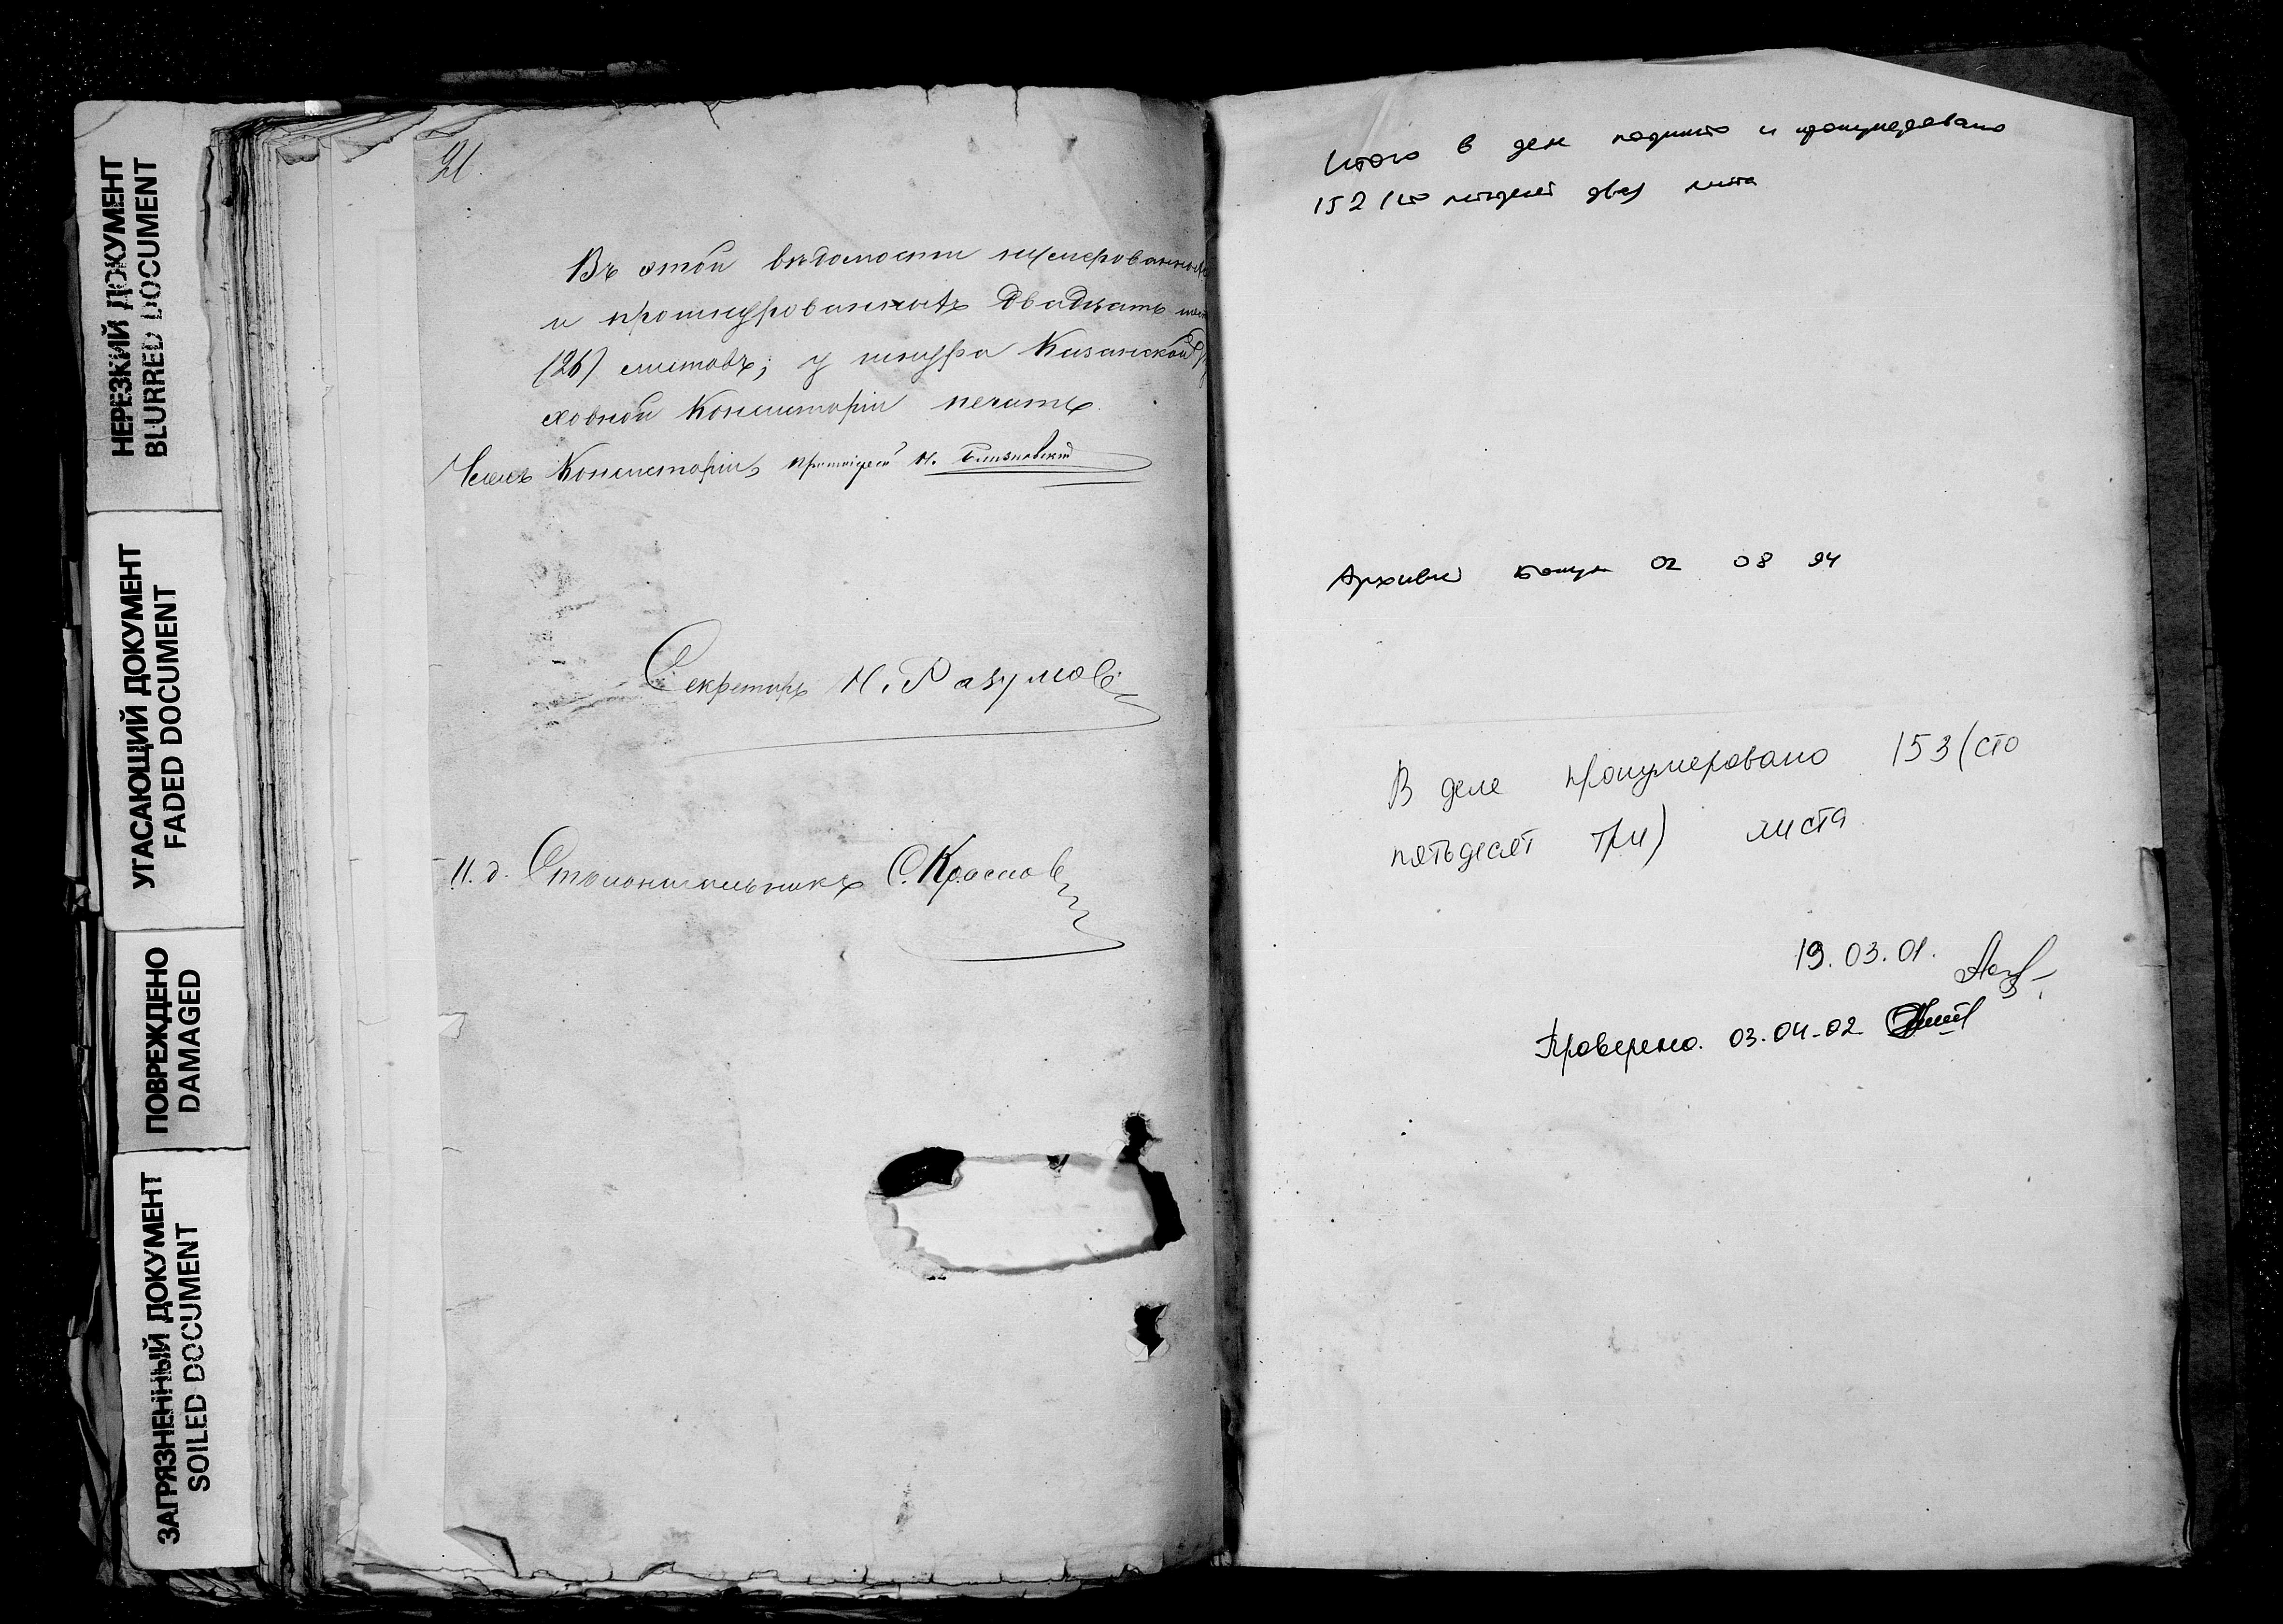 НЕРЕЗКИЙ ДОКУМЕНТ
BLURRED DOCUMENT
УГАСАЮЩИЙ ДОКУМЕНТ
FADED DOCUMENT
ПОВРЕЖДЕНО
DAMAGED
ЗАГРЯЗНЕННЫЙ ДОКУМЕНТ
SOILED DOCUMENT
Въ этой вѣдомости нумерованныхъ
и прошнурованныхъ двадцать
(26) листовъ; у шнура Казанской Ду
ховной Консисторіи печать.
Членъ Консисторіи, Протоіерей Н.
Секретарь Н. Разумовъ
И. д. Столоначальника С. Красновъ
Итого в деле подшито и пронумеровано
152 (сто пятьдесят два) листа
02 08 94
В деле пронумеровано 153 (сто
пятьдесят три) листа
19.03.01.
Проверено. 03.04.02